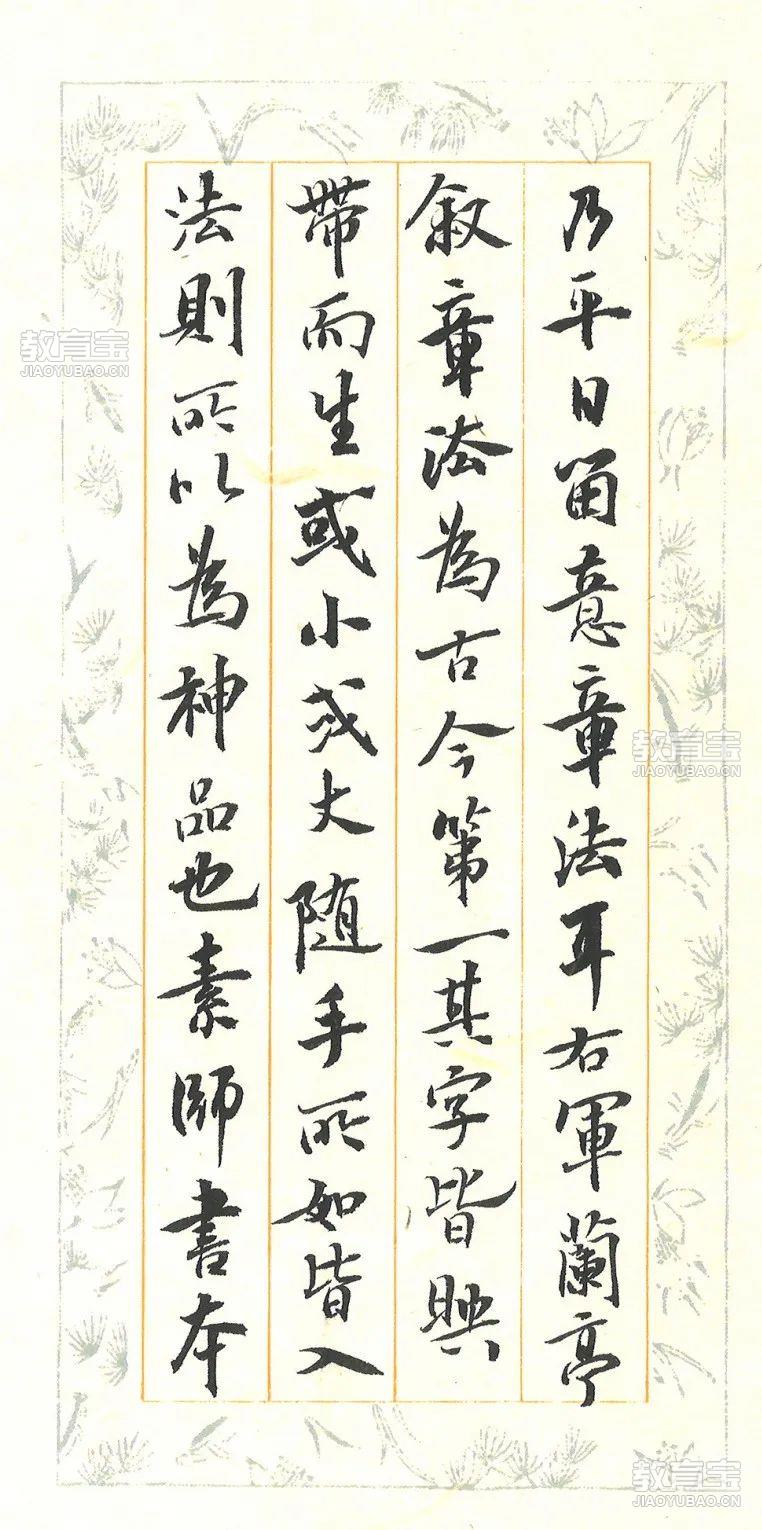 乃平日留意章法耳右軍蘭亭
叙章法為古今第一其字皆映
帶而生或小或大隨手所如皆入
法則所以為神品也素師書本
教育宝
JIAOYUBAO.CN
教育宝
JIAOYUBAO.CN
教育宝
JIAOYUBAO.CN